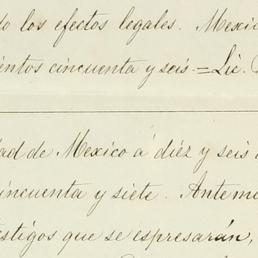 do los efectos legales. Mexico
entos cincuenta y seis.= Lic.
dad de Mexico á diéz y seis
cincuenta y siete. Ante mi
estigos que se espresarán,